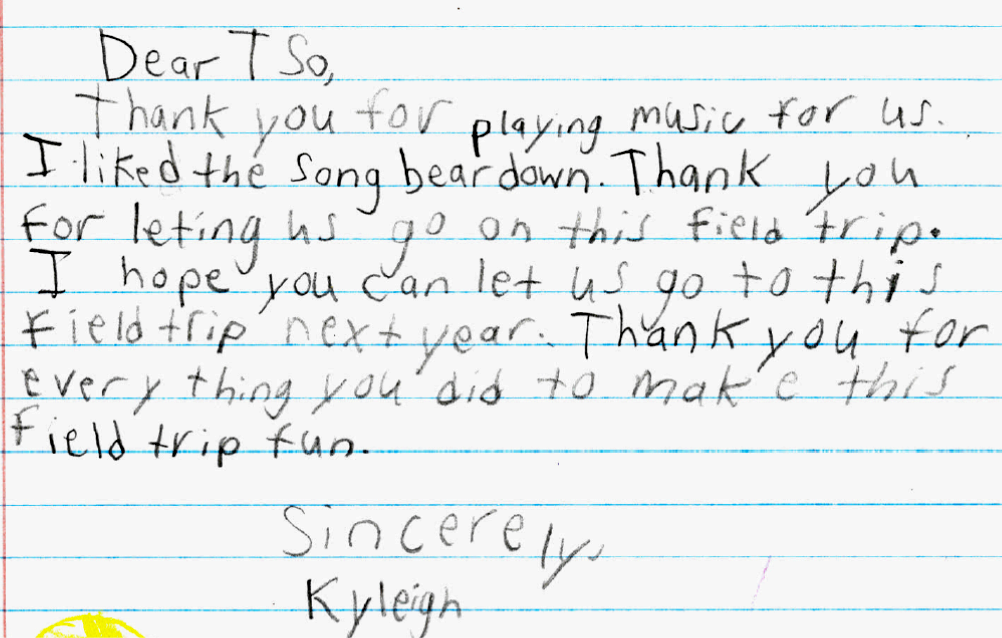 Dear TSo,
Thank you for playing music for us.
I liked the song bear down. Thank you
for leting us go on this field trip.
I hope you can let us go to this
field trip next year. Thank you for
every thing you did to make this
field trip fun.
Sincerely,
Kyleigh